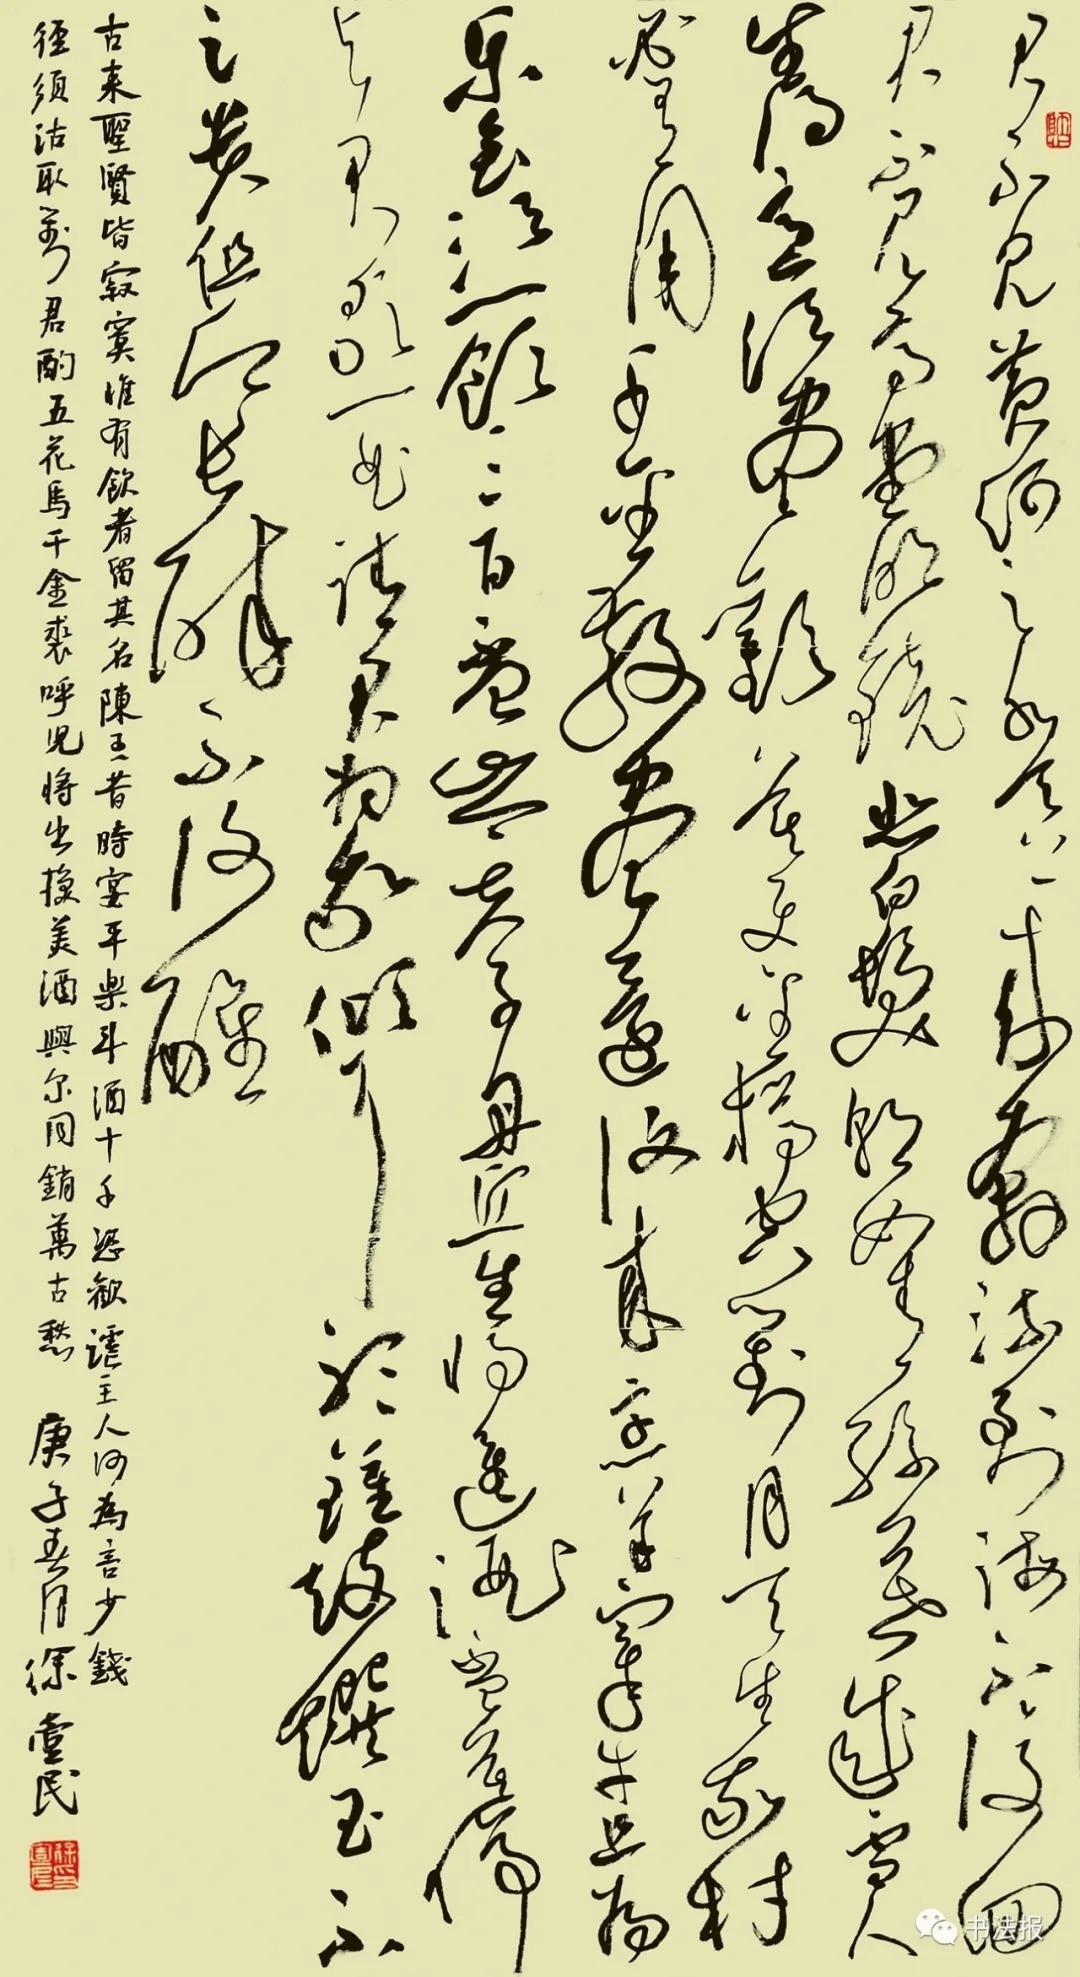 君不見黃河之水天上来奔流到海不復回
君不見高堂明鏡悲白髮朝如青絲暮成雪人
生得意須盡歡莫使金樽空對月天生我材
必有用千金散盡還復來烹羊宰牛且為
樂會須一飲三百盃岑夫子丹丘生將進酒盃莫停
與君歌一曲請君為我傾耳聽鐘鼓饌玉不
足貴但願長醉不復醒
古来聖賢皆寂寞惟有飲者留其名陳王昔時宴平樂斗酒十千恣歡謔主人何為言少錢
徑須沽取對君酌五花馬千金裘呼児將出換美酒與尔同銷萬古愁 庚子春月徐壹民
书法报